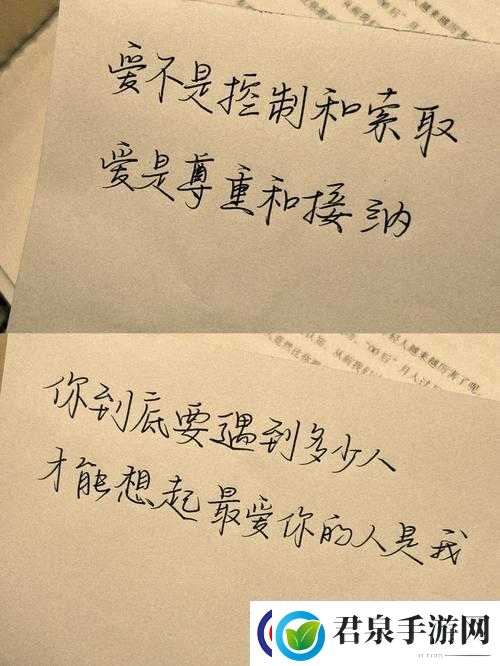 爱不是控制和索取
爱是尊重和接纳
你到底要遇到多少人
才能想起最爱你的人是我
君泉手游网